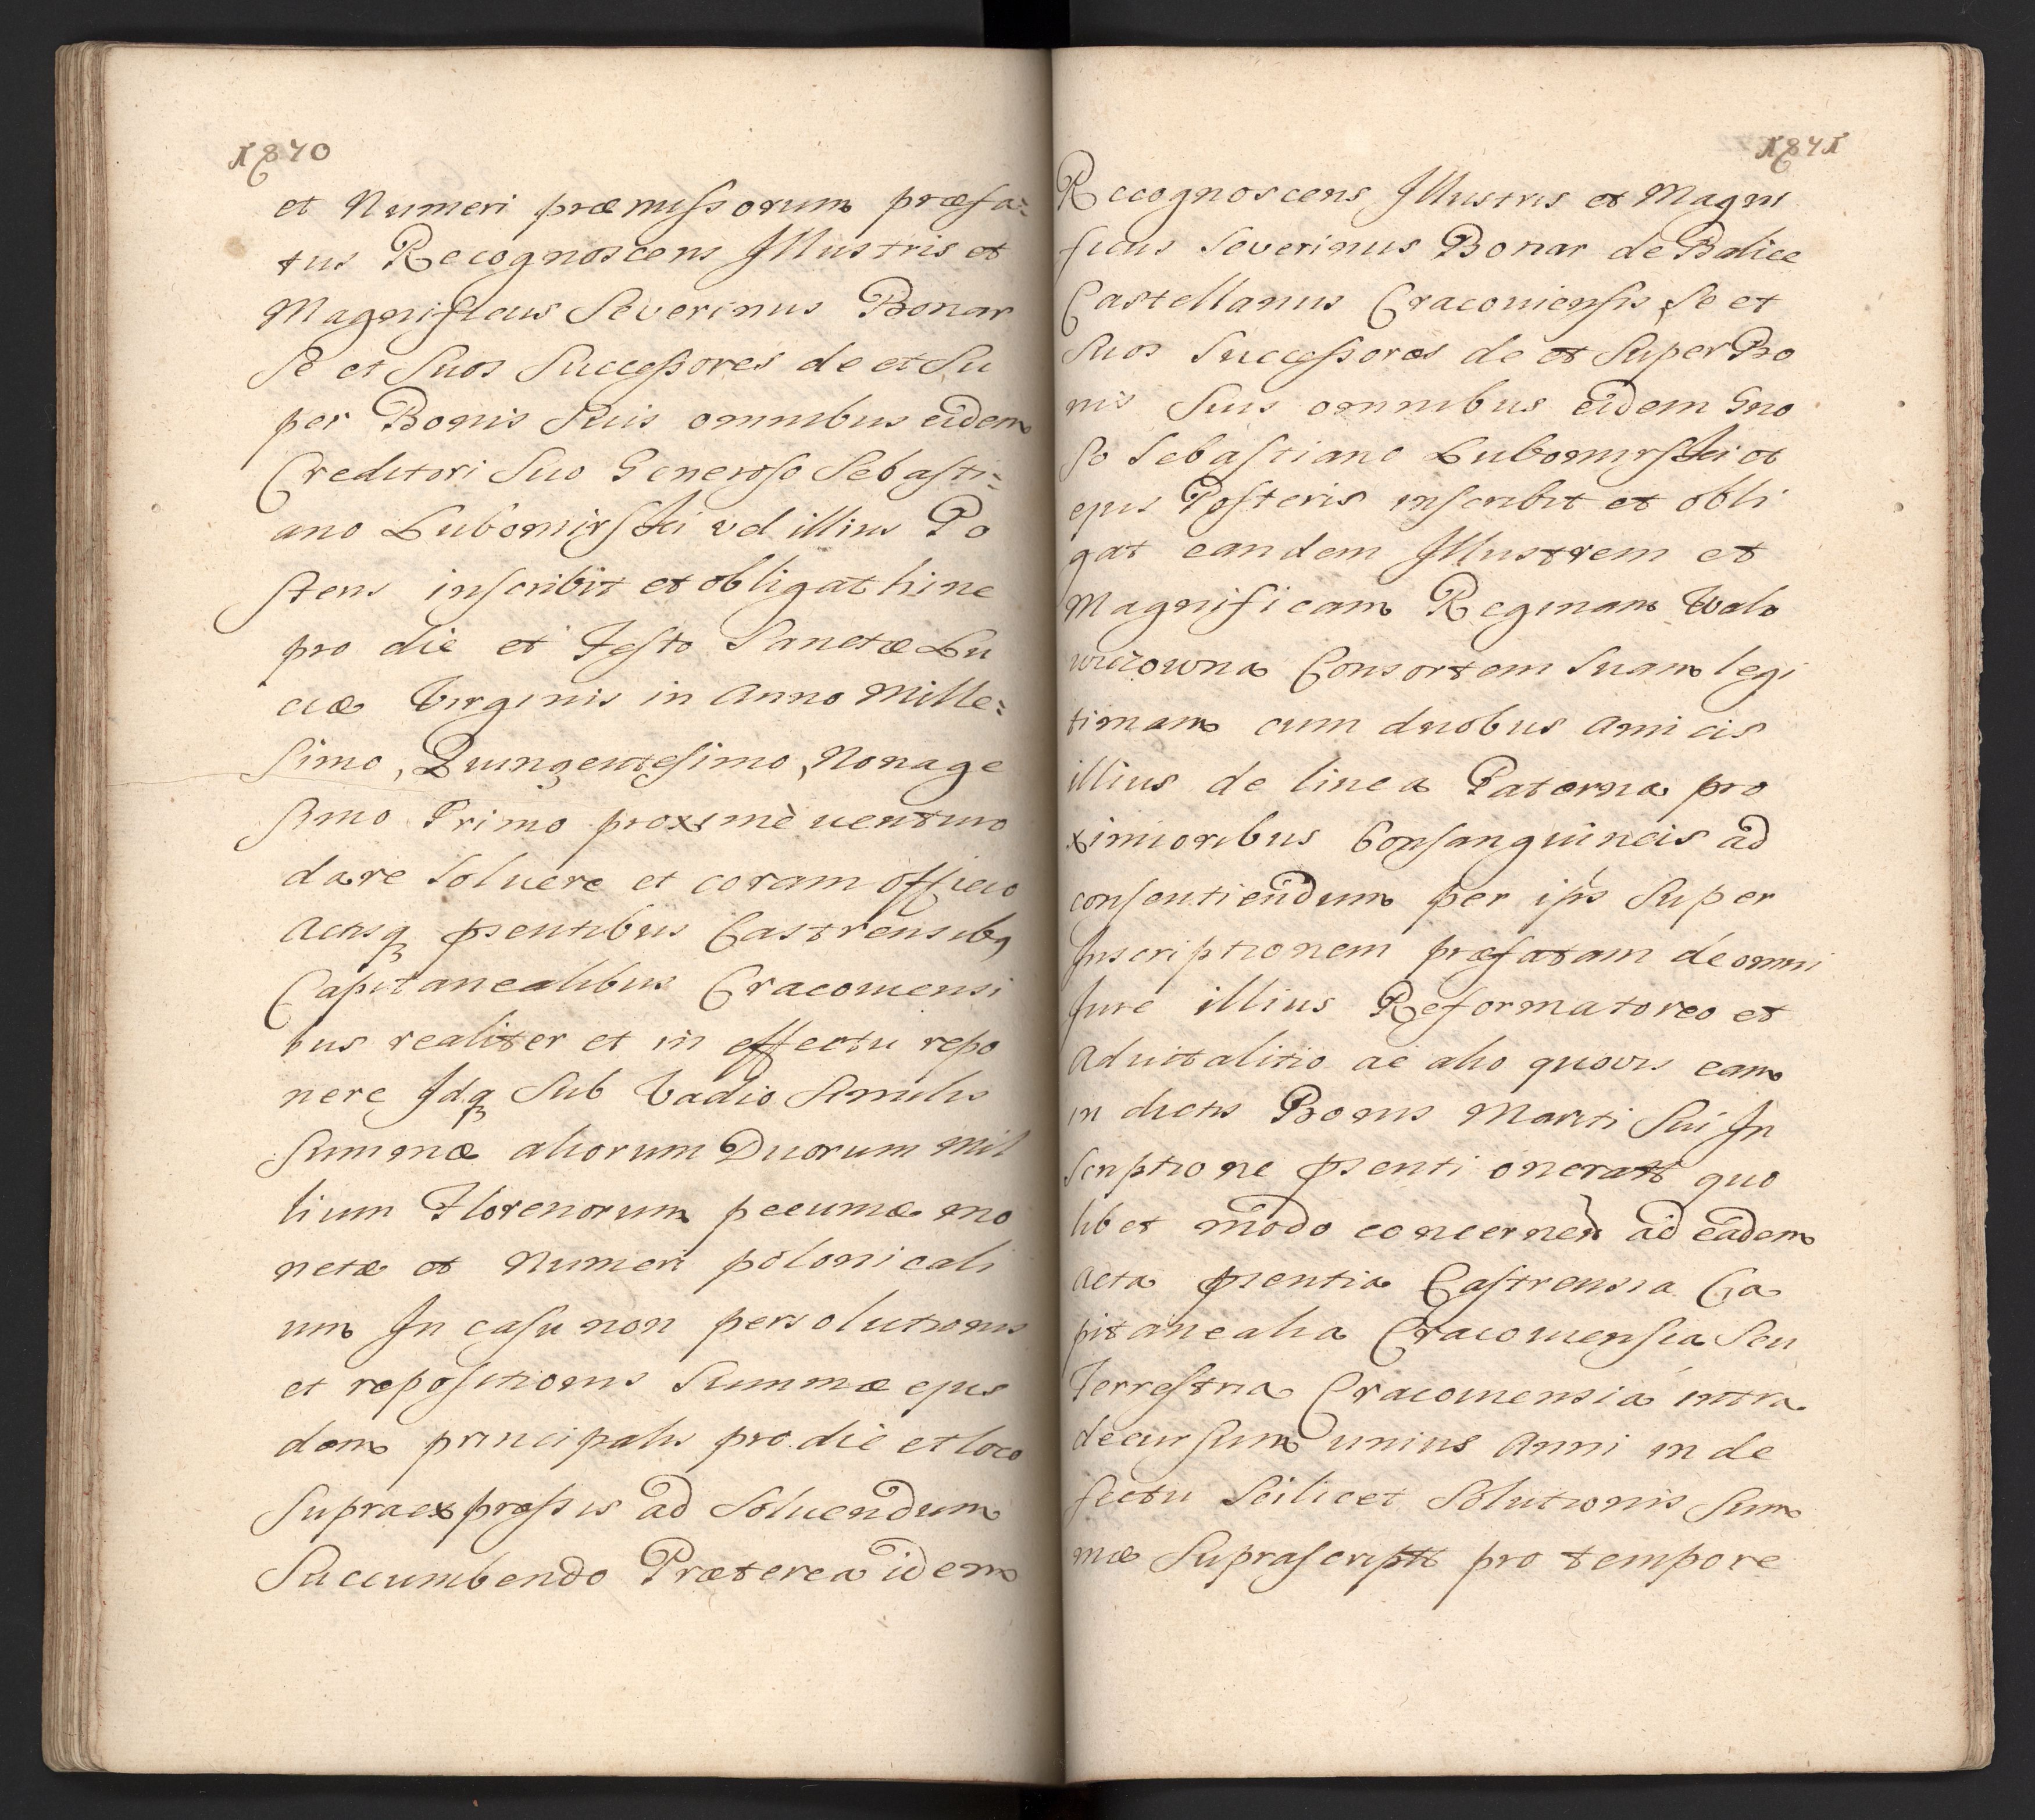 1840
et Numeri præmissorum præfa=
tus Recognoscens Illustris et
Magnificus Severinus Bonar
Se et Suos Successores de et Su
per Bonis Suis omnibus eidem
Creditori Suo Generoso Sebasti=
ano Lubomirski vel illius Po
steris inscribit et obligat hinc
pro die et Festo Sanctæ Lu
ciæ Virginis in Anno Mille=
simo, Quingentesimo, Nonage
simo Primo proximè venturo
dare Soluere et coram officio
Actisq psentibus Castrensibq
Capitanealibus Cracoviensi
bus realiter et in effectu repo
nere Idq Sub Vadio Similis
Summæ aliorum Duorum Mil
lium Florenorum pecuniæ mo
netæ et Numeri polonicali
um In casu non persolutionis
et repositionis Summæ ejus
dem principalis pro die et loco
Supraexpressis ad Soluendum
Succumbendo Præterea idem
1841
Recognoscens Illustris et Magni
ficus Severinus Bonar de Balice
Castellanus Cracoviensis Se et
Suos Successores de et Super Bo
nis Suis omnibus eidem Gno
So Sebastiano Lubomirski et
ejus Posteris inscribit et obli
gat eandem Illustrem et
Magnificam Reginam Wolo
wiczowna Consortem Suam legi
timam cum duobus Amicis
illius de linea Paterna pro
ximioribus Consanguineis ad
consentiendum per ips Super
Inscriptionem præfatam de omni
Jure illius Reformatoreo et
Aduitalitio ac alio quovis eam
in dictis Bonis Mariti Sui In
scriptione psenti oneratt quo
libet modo concernen ad eadem
Acta psentia Castrensia Ca
pitanealia Cracoviensia Seu
Terrestria Cracoviensia intra
decursum unius Anni in de
fectu Scilicet Solutionis Sum
mæ Suprascriptt pro tempore